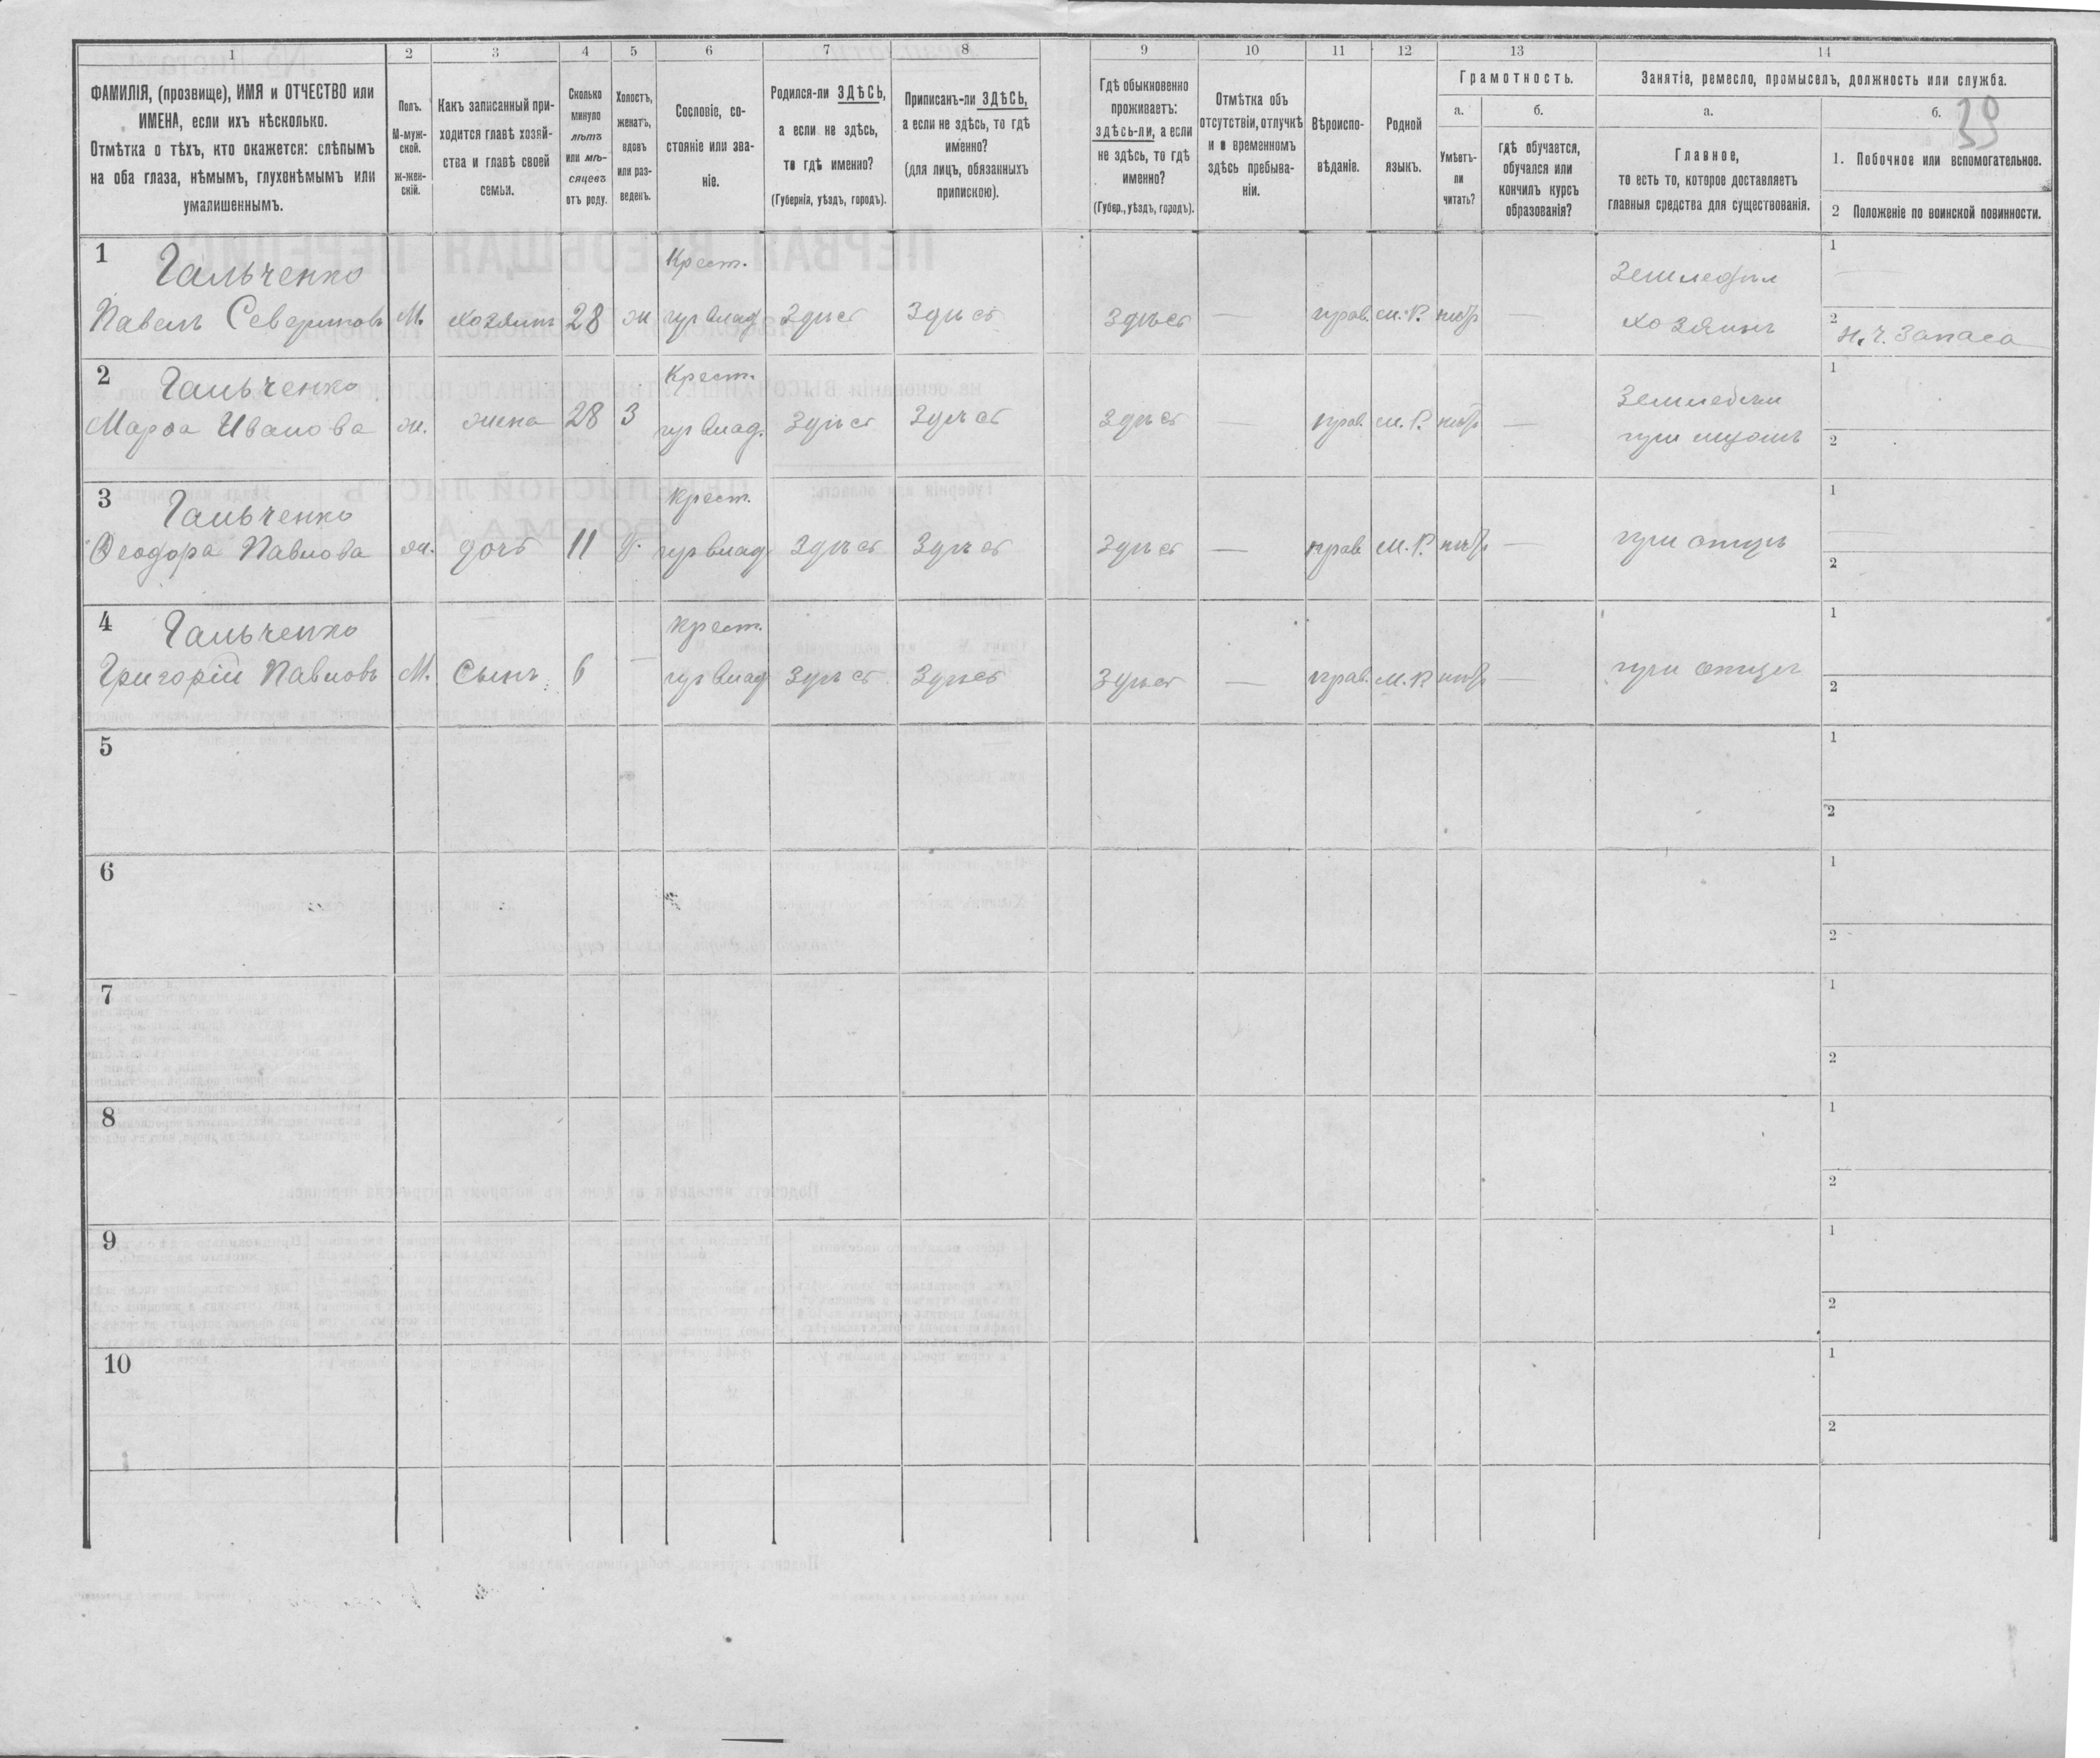 1
2
3
4
5
6
7
8
9
10
11
12
13
14
ФАМИЛІЯ, (прозвище), ИМЯ и ОТЧЕСТВО или
ИМЕНА, если ихъ нѣсколько.
Отмѣтка о тѣхъ, кто окажется: слѣпымъ
на оба глаза, нѣмымъ, глухонѣмымъ или
умалишеннымъ.
Полъ.
М-муж-
ской.
ж-жен-
скій.
Какъ записанный при-
ходится главѣ хозяй-
ства и главѣ своей
семьи.
Сколько
минуло
лѣтъ
или мѣ-
сяцевъ
отъ роду.
Холостъ,
женатъ,
вдовъ
или раз-
веденъ.
Сословіе, со-
стояніе или зва-
ніе.
Родился-ли ЗДѢСЬ,
а если не здѣсь,
то гдѣ именно?
(Губернія, уѣздъ, городъ).
Приписанъ-ли ЗДѢСЬ,
а если не здѣсь, то гдѣ
именно?
(для лицъ, обязанныхъ
припискою).
Гдѣ обыкновенно
проживаетъ:
здѣсь-ли, а если
не здѣсь, то гдѣ
именно?
(Губер., уѣздъ, городъ).
Отмѣтка объ
отсутствіи, отлучкѣ
и о временномъ
здѣсь пребыва-
ніи.
Вѣроиспо-
вѣданіе.
Родной
языкъ.
Грамотность.
а.
Умѣетъ-
ли
читать?
б.
гдѣ обучается,
обучался или
кончилъ курсъ
образованія?
Занятіе, ремесло, промыселъ, должность или служба.
а.
Главное,
то есть то, которое доставляетъ
главныя средства для существованія.
б.
39
1. Побочное или вспомогательное.
2 Положеніе по воинской повинности.
1 Гальченко Крест. Земледѣл 1
Павелъ Севериновъ М. хозяинъ 28 ж здѣсь здѣсь здѣсь — прав. М. Р. — хозяинъ 2 н. ч. запаса
2 Гальченко Крест. 1
Марѳа Иванова ж. жена 28 З здѣсь здѣсь здѣсь — прав. М. Р. — при мужѣ 2
3 Гальченко Крест. 1
Ѳеодора Павлова ж. дочь 11 здѣсь здѣсь здѣсь — прав. М. Р. — при отцѣ 2
4 Гальченко Крест. 1
Григорій Павловъ М. Сынъ 6 — здѣсь здѣсь здѣсь — прав. М. Р. — при отцѣ 2
5 1
2
6 1
2
7 1
2
8 1
2
9 1
2
10 1
2